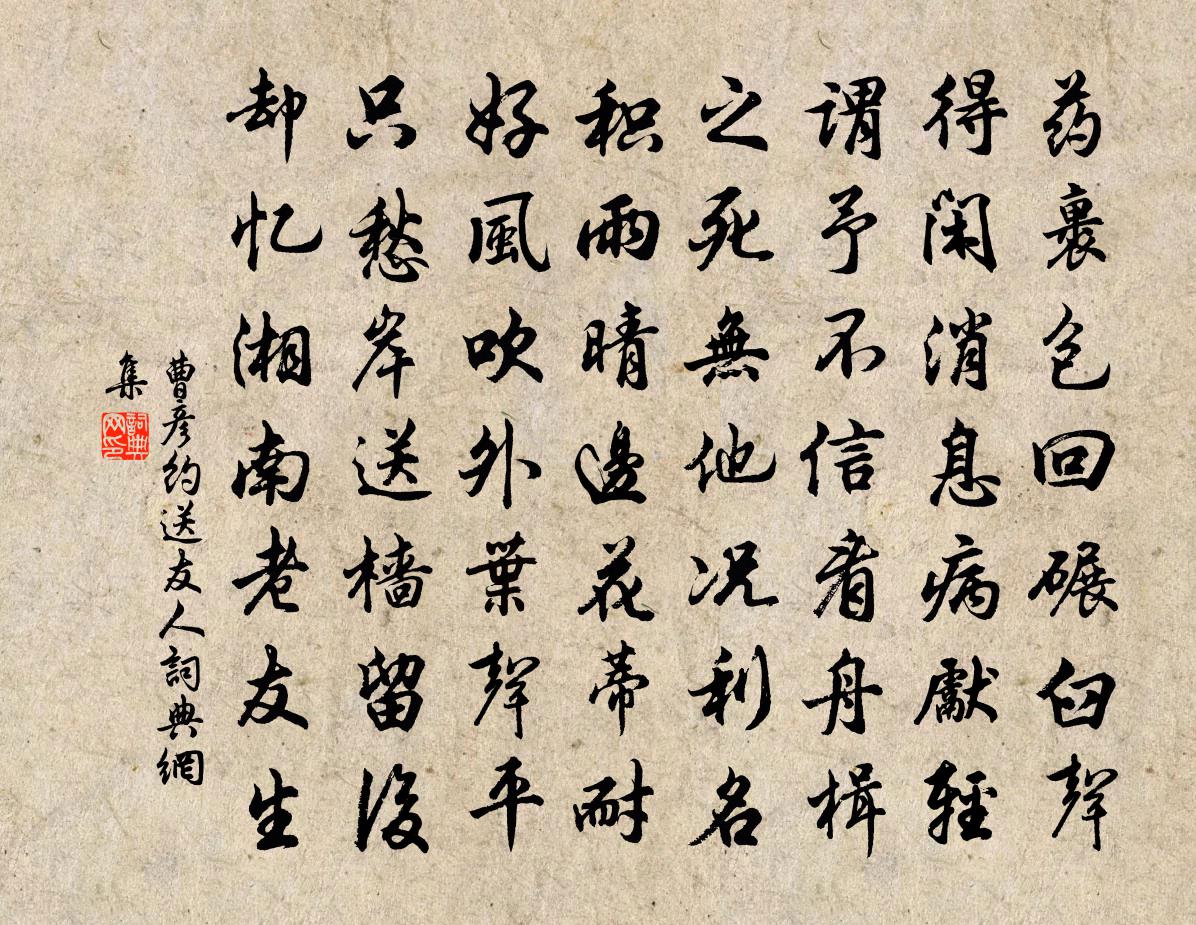 药裹包回碾臼聲
得闲消息病獻輕
谓予不信看舟楫
之死無他况利名
积雨晴邊花蒂耐
好風吹外葉聲平
只愁岸送檣留後
却忆湘南老友生
曹彦约送友人詞典網
集
詞典
网印